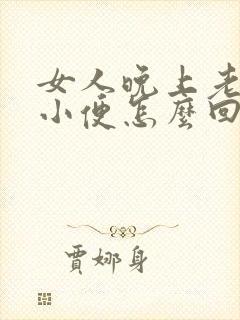 女人晚上老
小便怎麼回
賈娜身